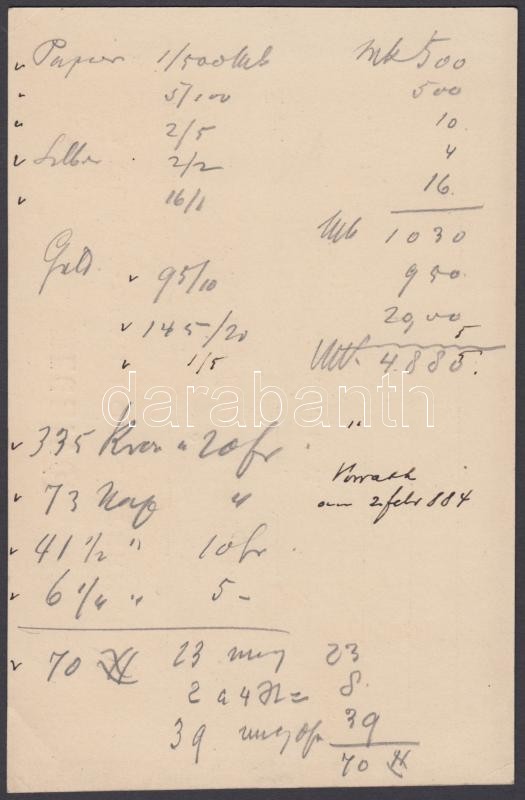 Papier 1/500 Mk Mk 500
5/100 500
2/5 10
Silber 2/2 4
16/1 16
Mk 1030
Gold. 95/10 950
145/20
1/5 5
Mk. 4885.
darabanth
335 20 fr
Vorrath
73 Nap "
am 2 febr 884
41 1/2 " 10 fr
" 5 -
70 23 23
2 a 4 = 8
39 39
70